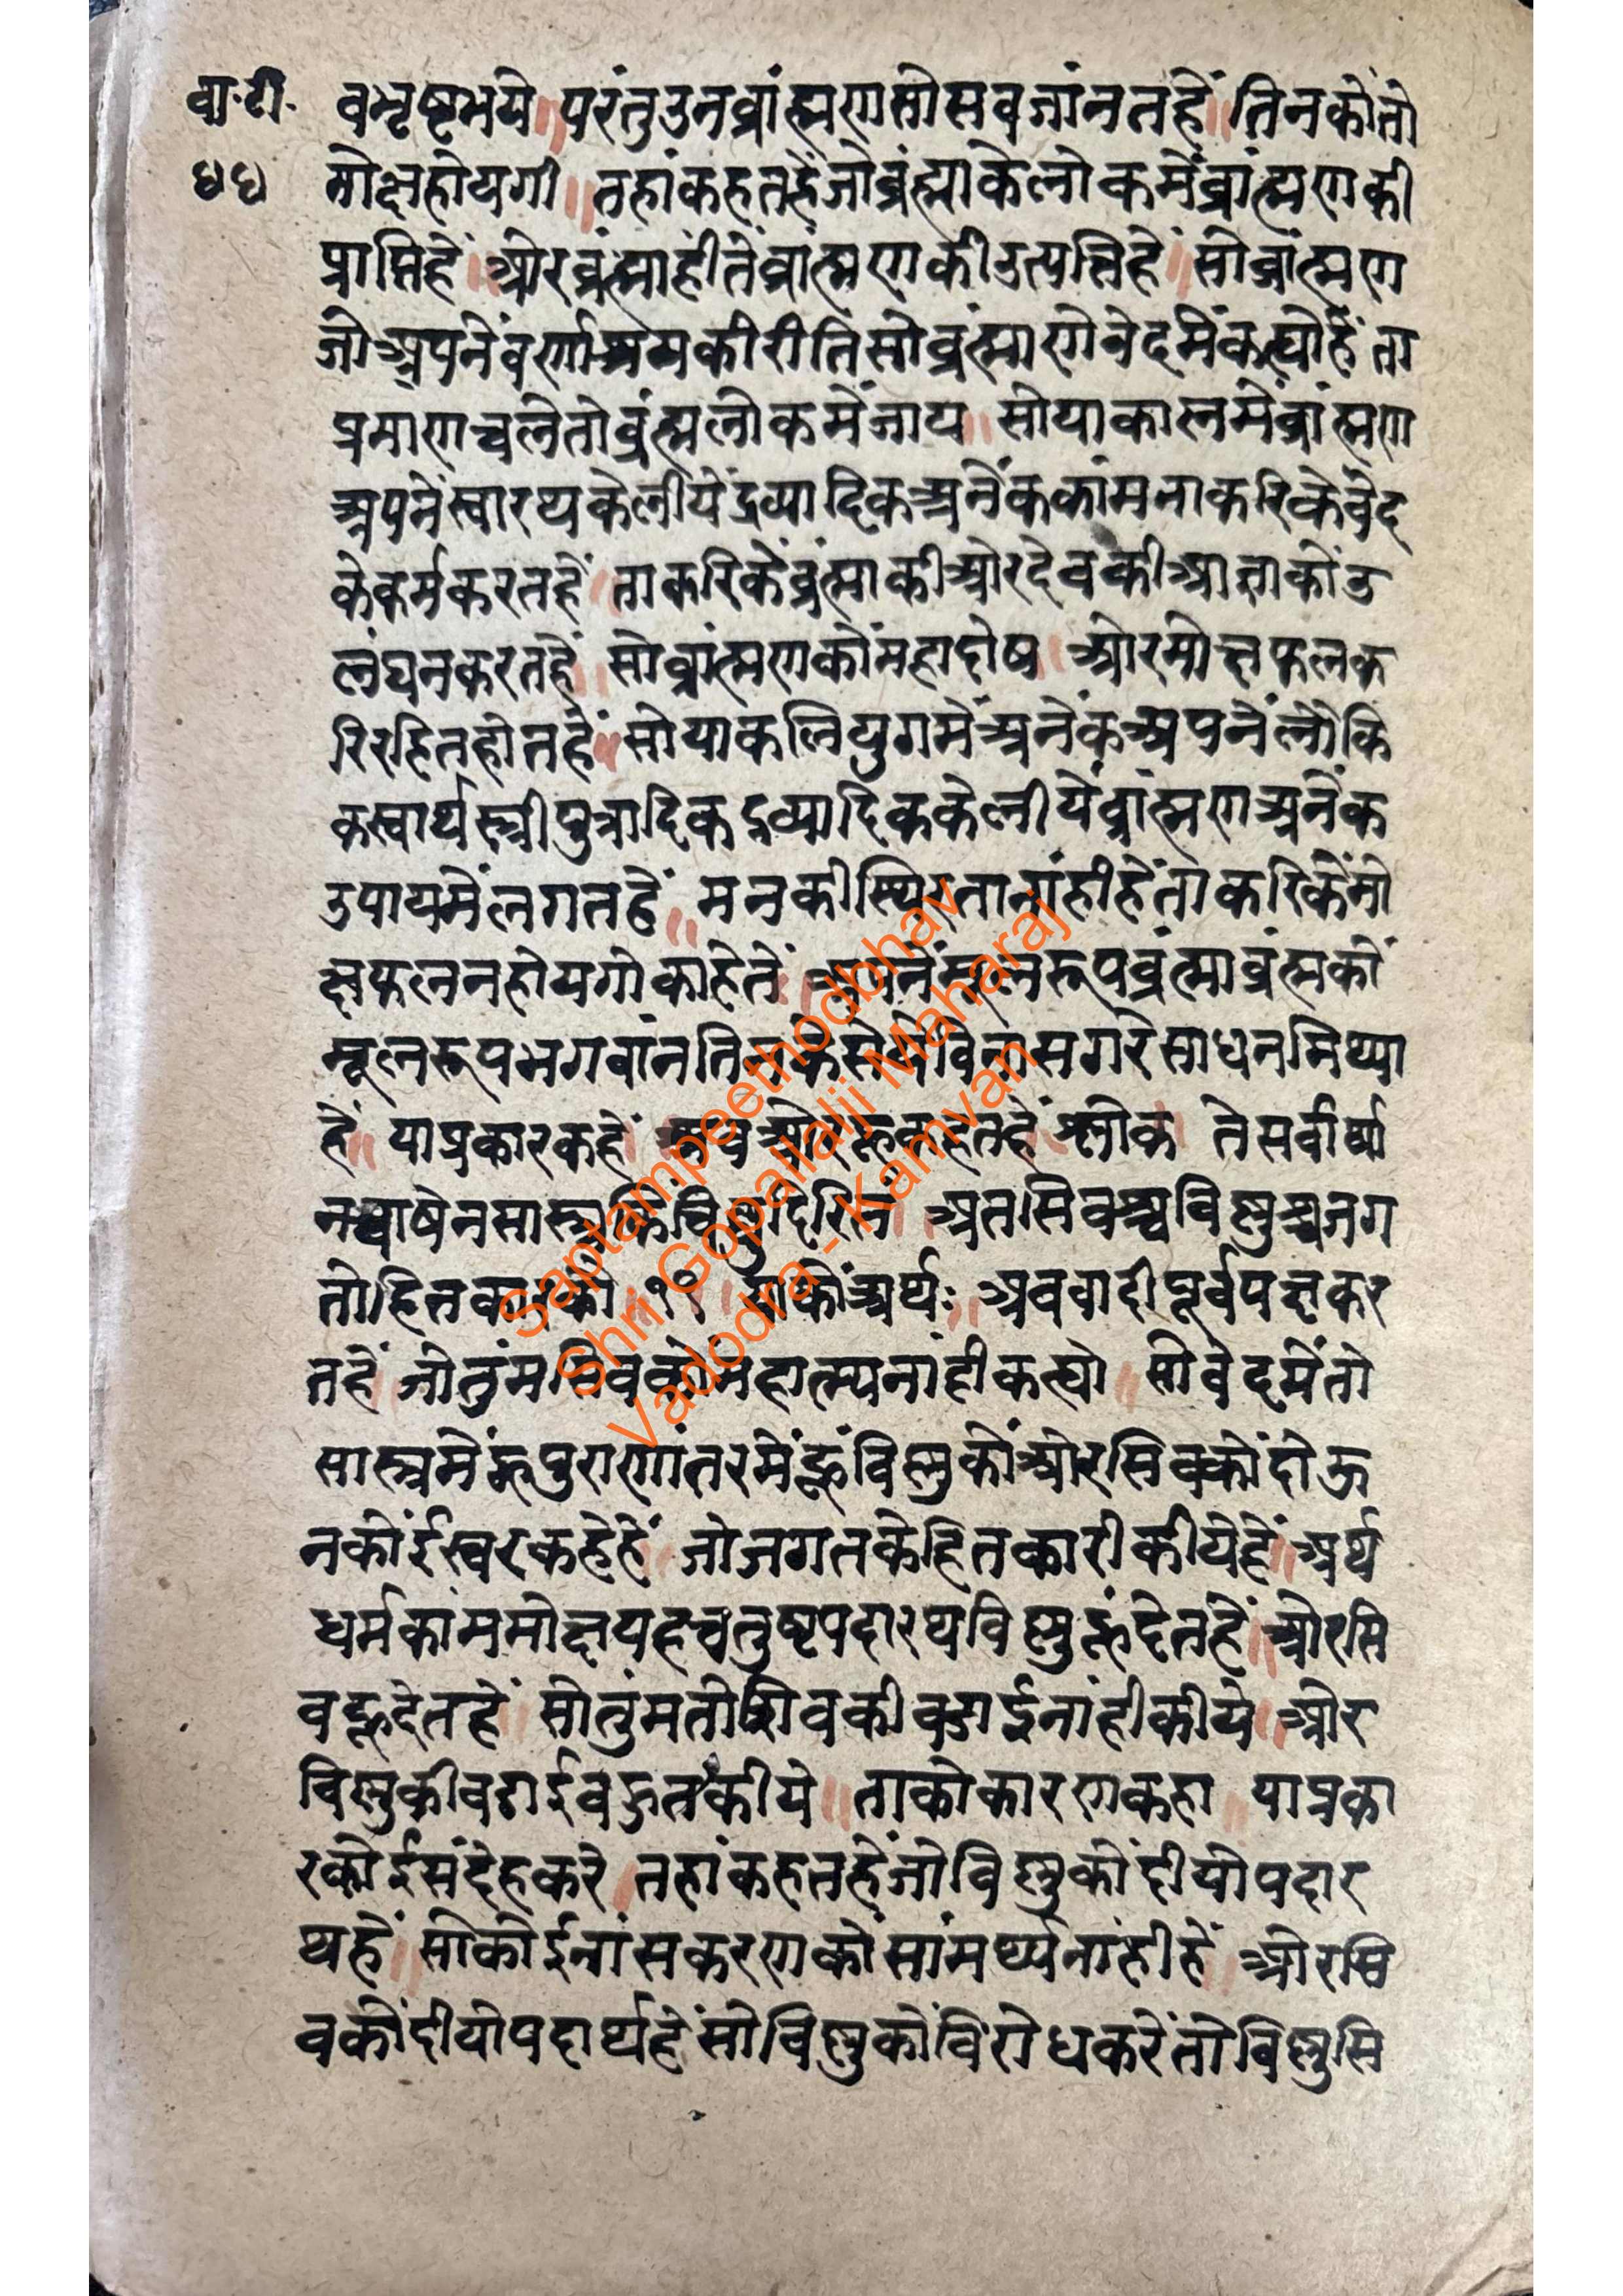 वा.टी. वभृष्टभये ॥ परंतुउनव्रांह्मणतोसवजांनतहें ॥ तिनकोंतो
४४ मोक्षहोयगी ॥ तहांकहतहेंजोव्रंह्माकेलोकमेंव्रांह्मणकी
प्राप्तिहें ॥ ओरव्रंह्माहीतेंव्रांह्मणकीउत्पत्तिहें ॥ सोव्रांह्मण
जोअपनेंवर्णाश्रमकीरीतिसोव्रंह्माणेवेदमेंकह्योहें ता
प्रमाणचलेतोव्रंह्मलोकमेंजाय ॥ सोयाकालमेंव्रांह्मण
अपनेंस्वारथकेलीयेंद्रव्यादिकअनेंककांमनाकरिकेवेद
केकर्मकरतहें ॥ ताकरिकेंव्रंह्माकीओरदेवकीआज्ञाकोंउ
लंघनकरतहें ॥ सोव्रांह्मणकोंमहादोष ॥ ओरमोक्षफलक
रिरहितहोतहें ॥ सोयाकलियुगमेंअनेंकअपनेंलोकि
कस्वार्थस्त्रीपुत्रादिकद्रव्यादिककेलीयेंव्रांह्मणअनेंक
उपायमेंलगतहें ॥ मनकीस्थिरतानांहीहेंताकरिकेंमो
क्षफलनहोयगोकाहेतें ॥ अपनेंमूलरूपव्रंह्माव्रंह्मकों
मूलरूपभगवांनतिनकेसेयेंविनासगरेसाधनमिथ्या
हें ॥ याप्रकारकहें ॥ अवओरहूकहतहें श्लोक ॥ तेसर्वार्था
नचाषेनसास्त्रकिंचिदुदिरितं ॥ अतसिवश्चविष्णुश्चजग
तोहितकारको ॥ ११ ॥ याकोंअर्थः ॥ अववादीपूर्वपक्षकर
तहें ॥ जोतुंमसिवकोंमहात्म्यनांहीकह्यो ॥ सोवेदमेंतो
सास्त्रमेंहूपुराणांतरमेंहूंविष्णुकोंओरसिवकोंदोऊ
नकोंईस्वरकहेहें ॥ जोजगतकेहितकारीकीयेहें ॥ अर्थ
धर्मकांममोक्षयहचतुष्टपदारथविष्णुहूंदेतहें ॥ ओरसि
वहूदेतहें ॥ सोतुंमतोशिवकीवडाईनांहीकीये ॥ ओर
विष्णुकीवडाईवहुतकीये ॥ ताकोकारणकहा ॥ याप्रका
रकोईसंदेहकरे ॥ तहांकहतहेंजोविष्णुकोंदीयोपदार
थहें ॥ सोकोईनांसकरणकोंसांमर्थ्यनांहीहें ॥ ओरसि
वकोंदीयोपदार्थहेंसोविष्णुकोंविरोधकरेंतोविष्णुसि
Saptampeethodbhav
Shri Gopallalji Maharaj
Vadodra - Kamvan